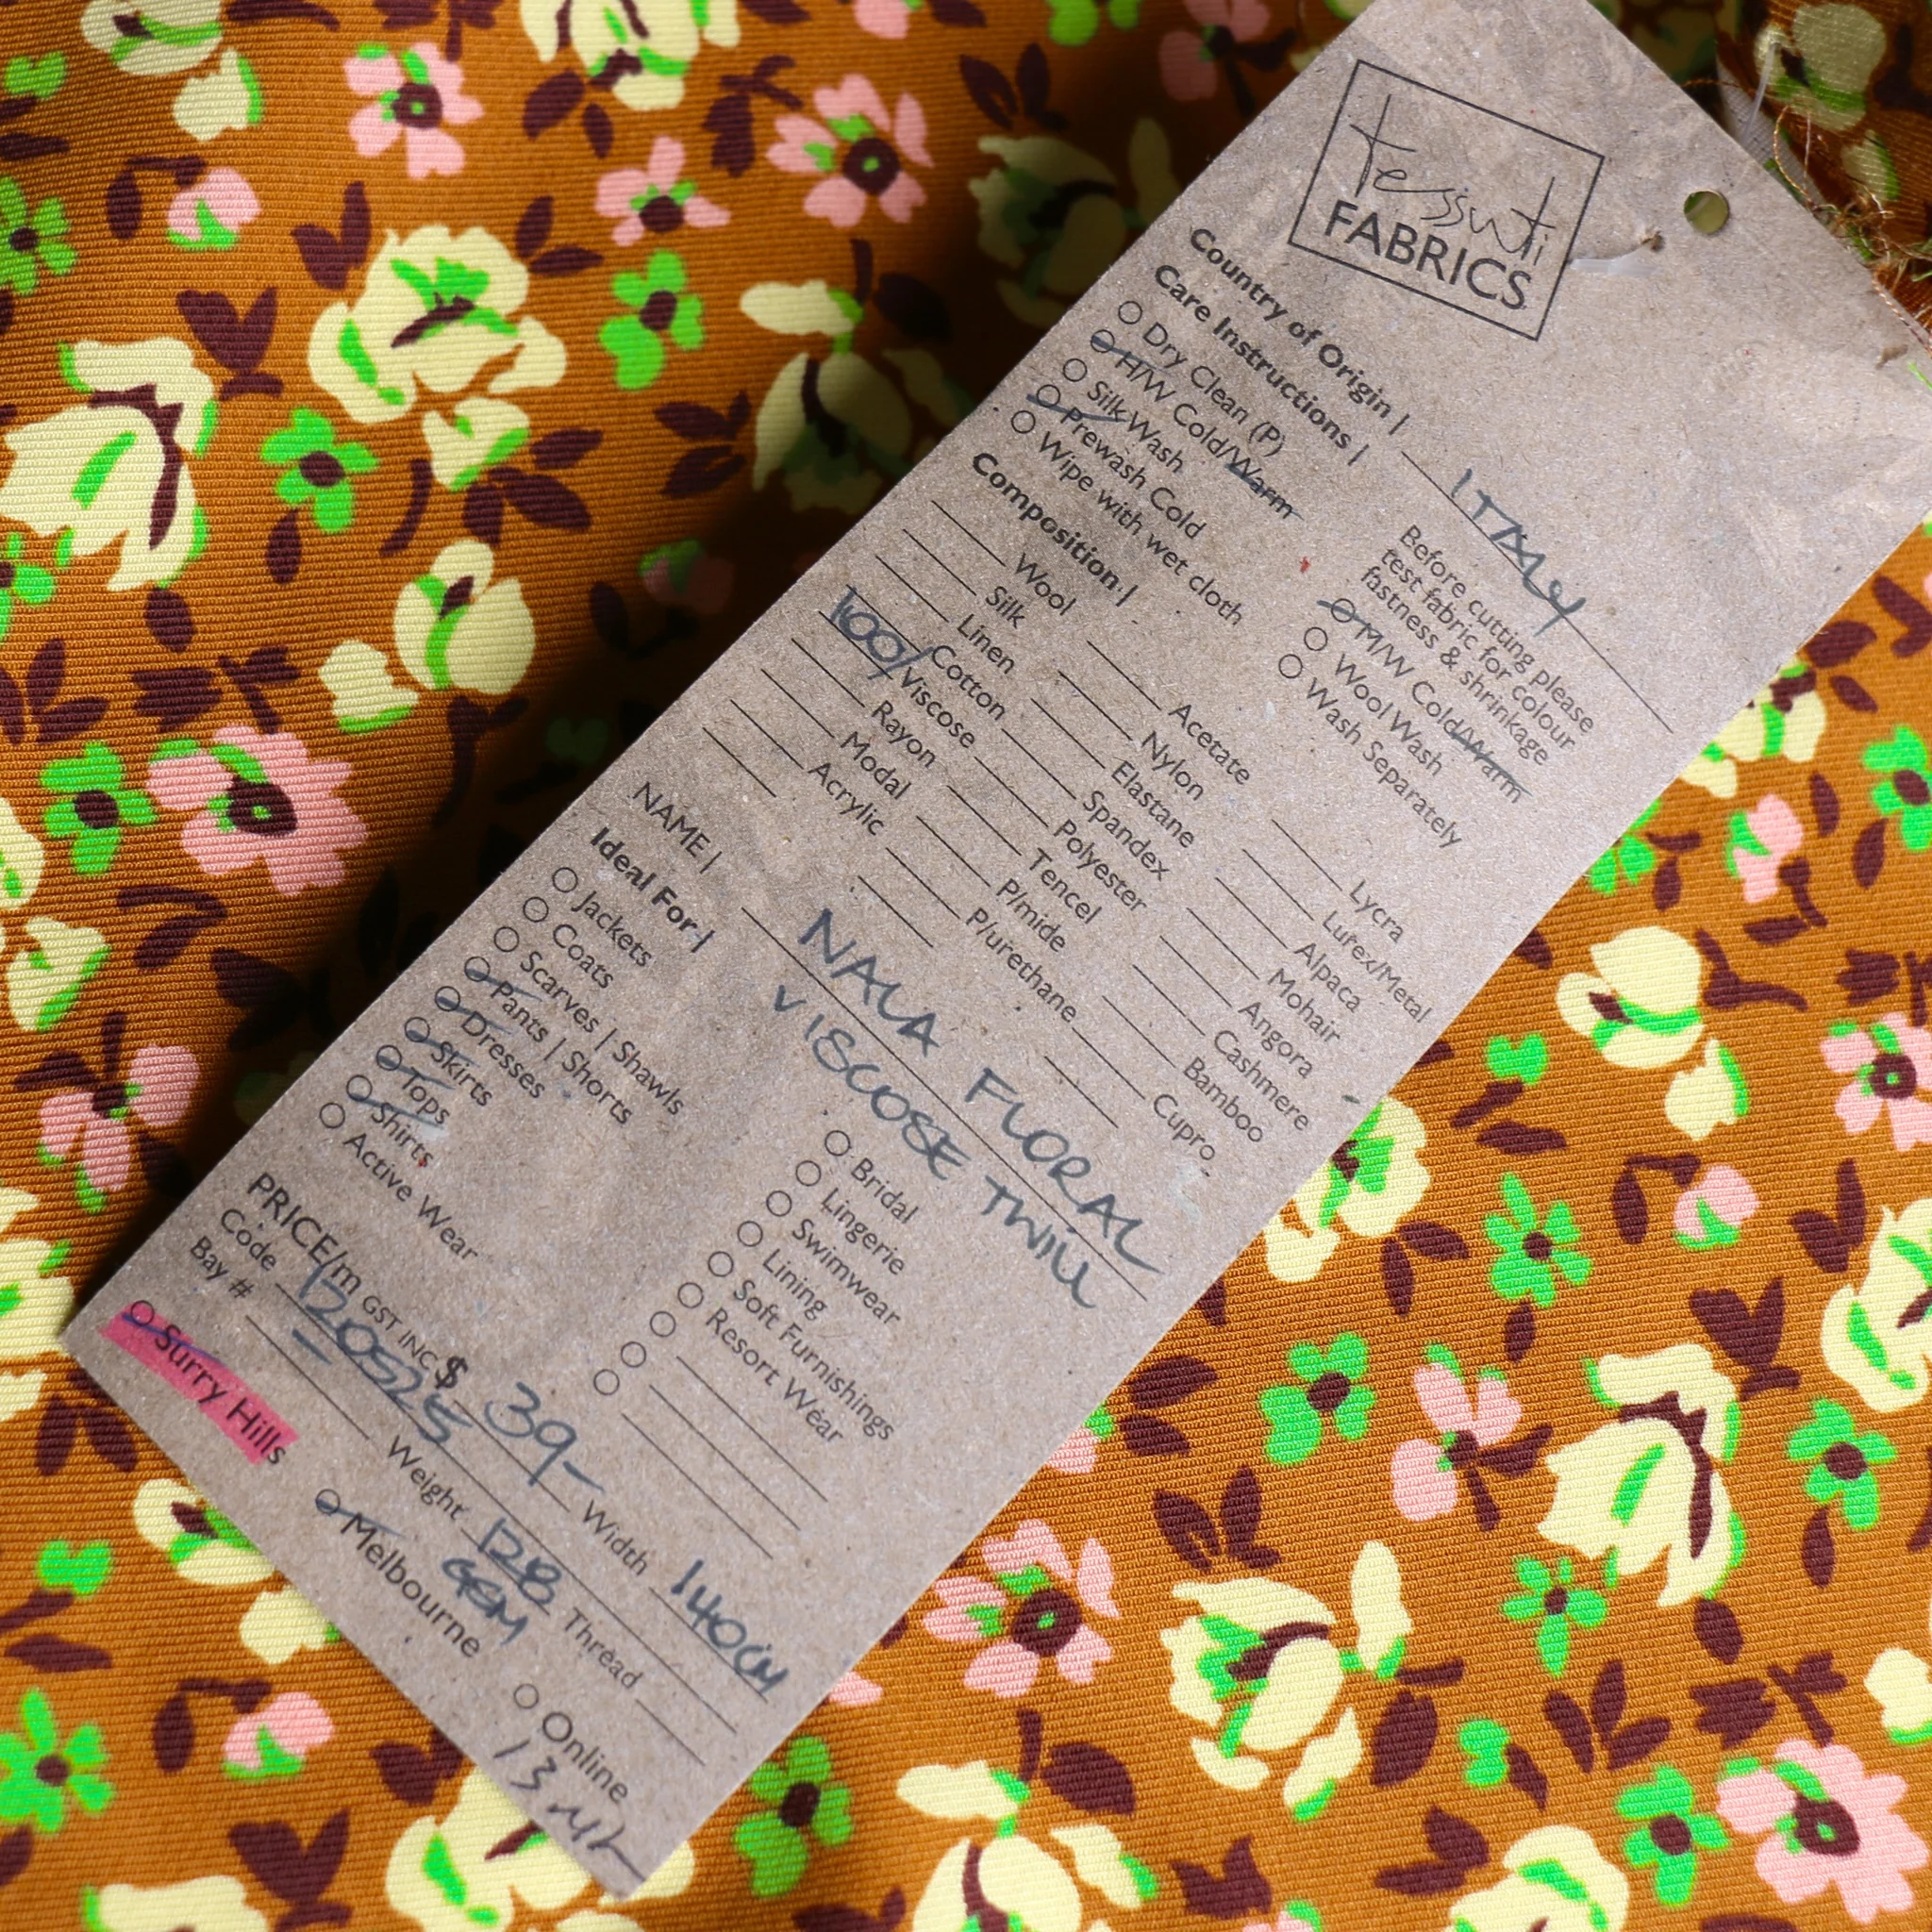 tessuti
FABRICS
Country of Origin | ITALY
Care Instructions |
Before cutting please
test fabric for colour
fastness & shrinkage
Dry Clean (P)
H/W Cold/Warm
Silk Wash
Prewash Cold
Wipe with wet cloth
M/W Cold/Warm
Wool Wash
Wash Separately
Composition |
Wool
Silk
Linen
Cotton
100/ Viscose
Rayon
Modal
Acrylic
Acetate
Nylon
Elastane
Spandex
Polyester
Tencel
P/mide
P/urethane
Lycra
Lurex/Metal
Alpaca
Mohair
Angora
Cashmere
Bamboo
Cupro
NAME | NALA FLORAL
VISCOSE TWILL
Ideal For |
Jackets
Coats
Scarves | Shawls
Pants | Shorts
Dresses
Skirts
Tops
Shirts
Active Wear
Bridal
Lingerie
Swimwear
Lining
Soft Furnishings
Resort Wear
PRICE/m GST INC $ 39- Width 140CM
Code 120525 Weight 128 GSM Thread
Bay #
Surry Hills Melbourne Online